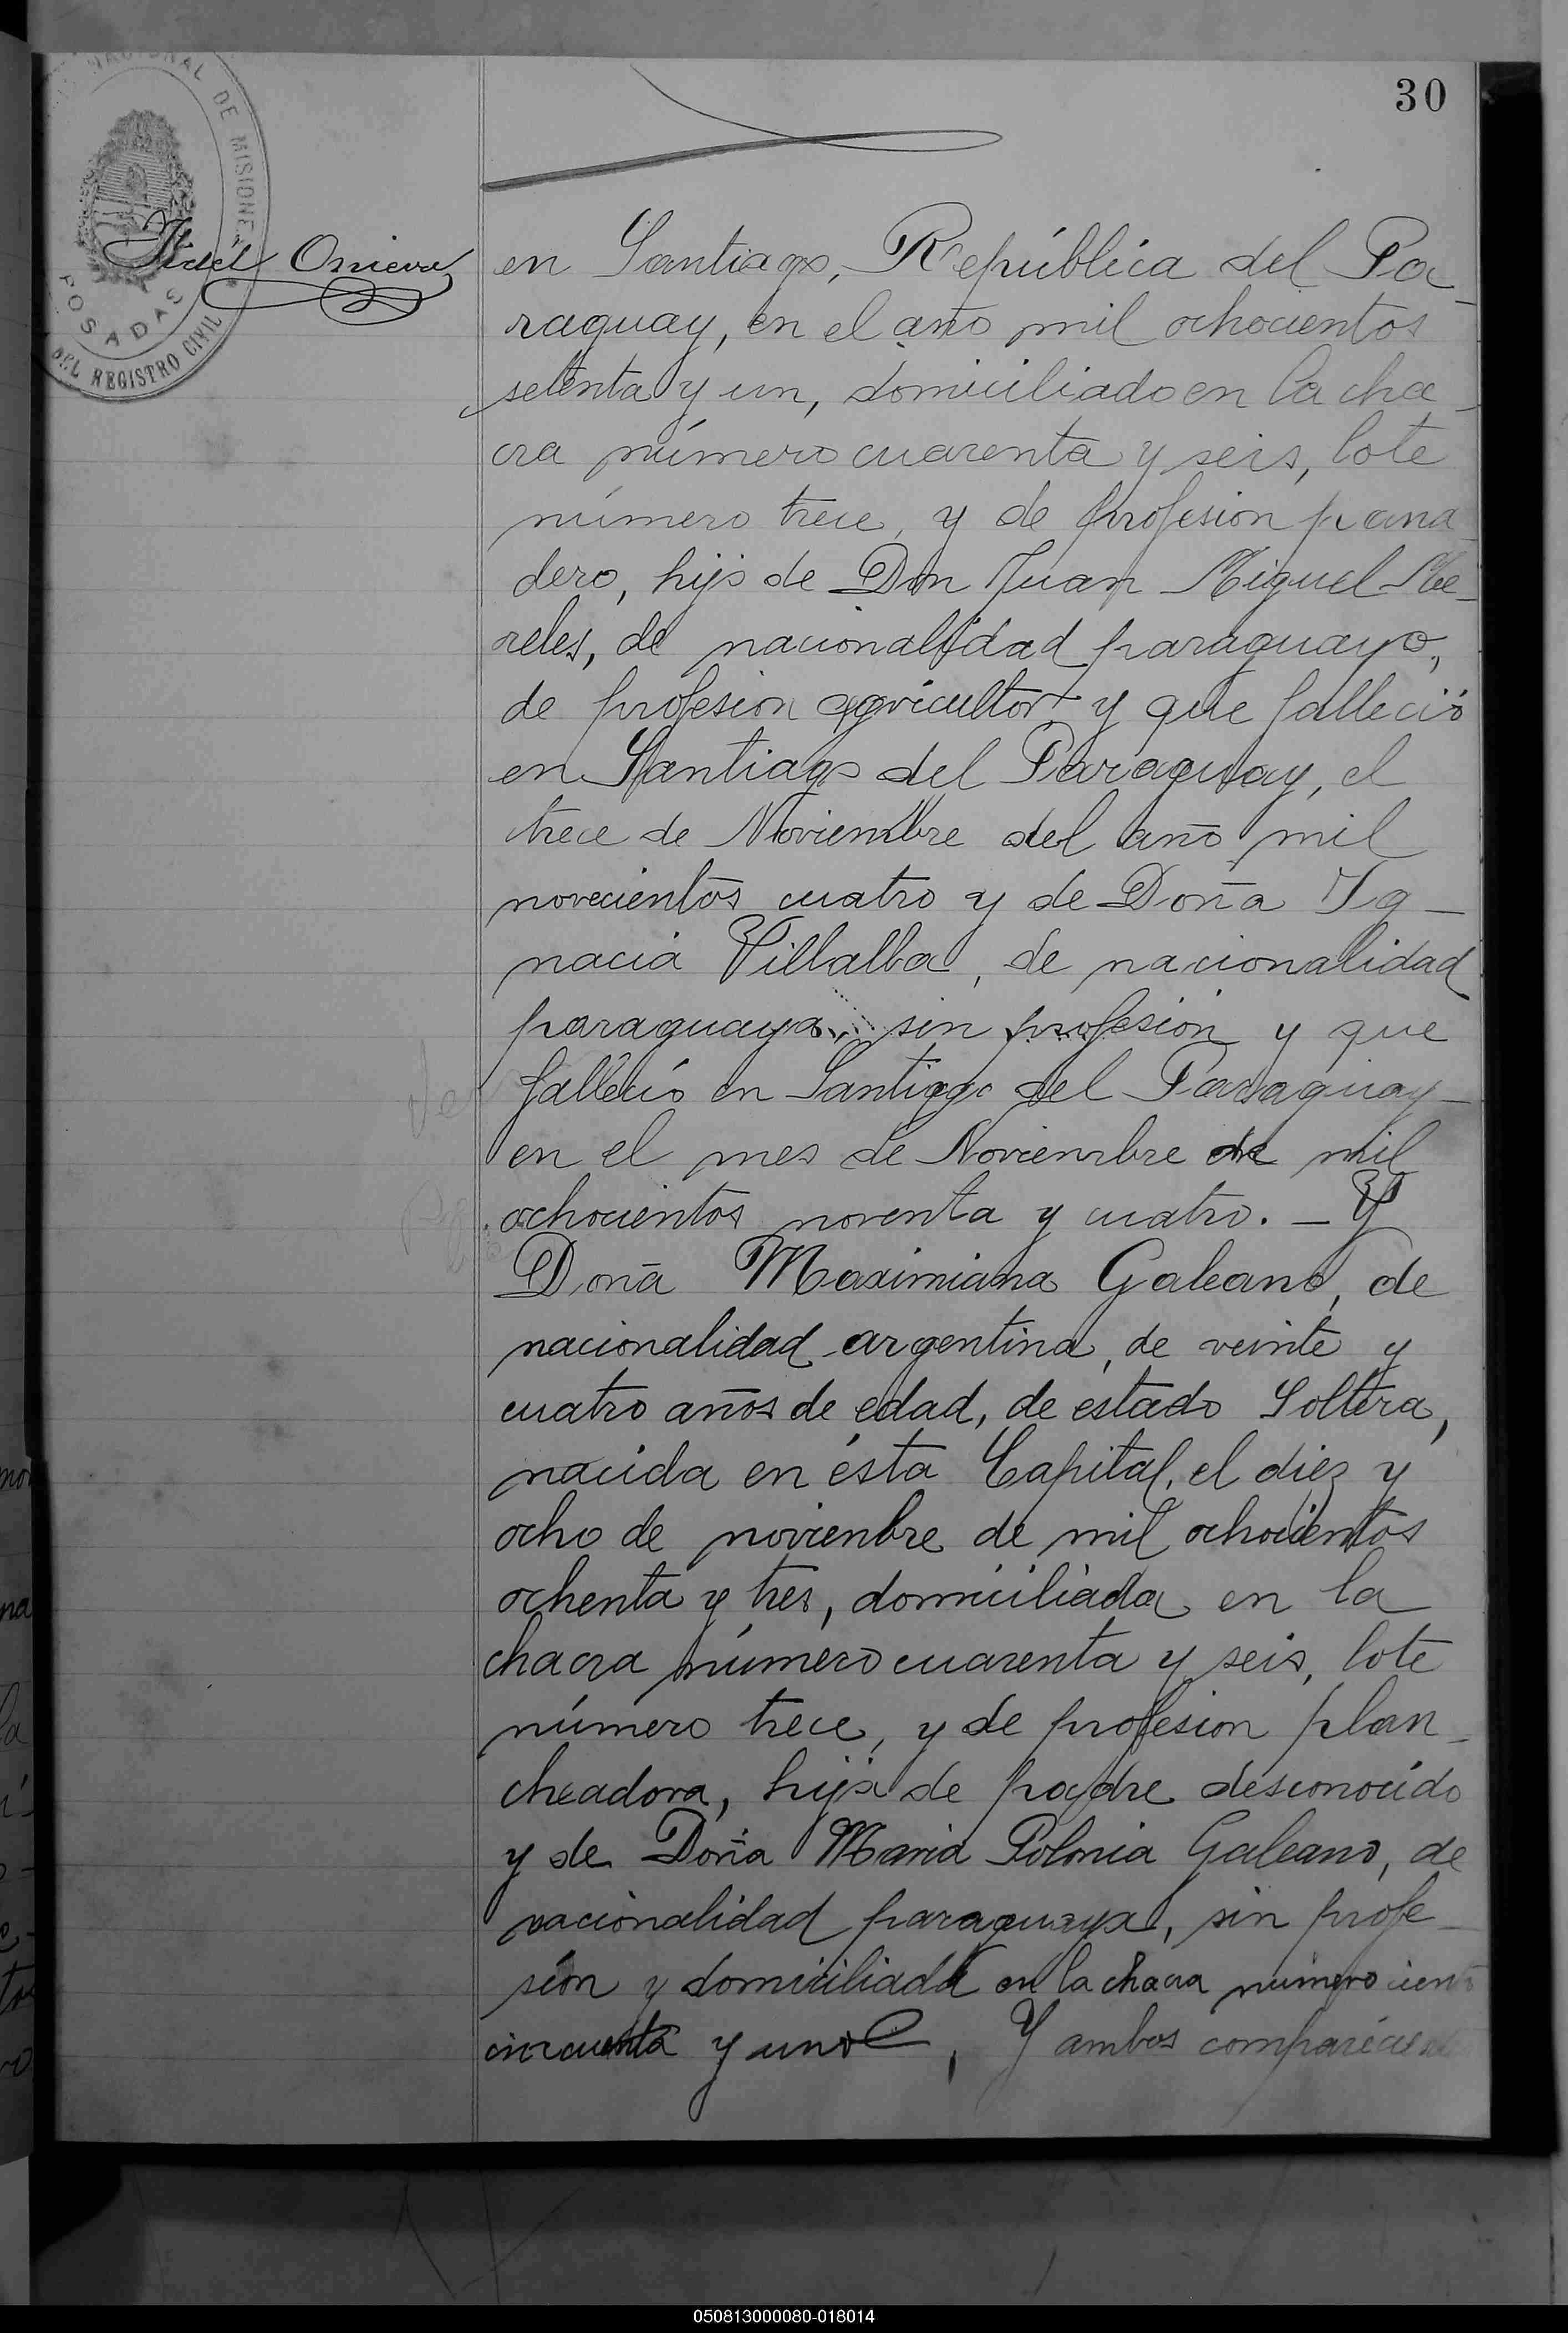 30
NACIONAL DE MISIONES
POSADAS
DEL REGISTRO CIVIL
en Santiago, República del Pa-
raguay, en el año mil ochocientos
setenta y un, domiciliado en la cha-
cra número cuarenta y seis, lote
número trece, y de profesion pana-
dero, hijo de Don Juan Miguel Me-
reles, de nacionalidad paraguayo,
de profesion agricultor y que falleció
en Santiago del Paraguay, el
trece de Noviembre del año mil
novecientos cuatro y de Doña Ig-
nacia Villalba, de nacionalidad
paraguaya, sin profesion y que
falleció en Santiago del Paraguay-
en el mes de Noviembre de mil
ochocientos noventa y cuatro. - Y
Doña Maximiana Galeano, de
nacionalidad argentina, de veinte y
cuatro años de edad, de estado Soltera,
nacida en ésta Capital, el diez y
ocho de noviembre de mil ochocientos
ochenta y tres, domiciliada en la
chacra número cuarenta y seis, lote
número trece, y de profesion plan-
cheadora, hija de padre desconocido
y de Doña Maria Polonia Galeano, de
nacionalidad paraguaya, sin profe-
sion y domiciliada en la chacra número ciento
cincuenta y uno, Y ambos
050813000080-018014